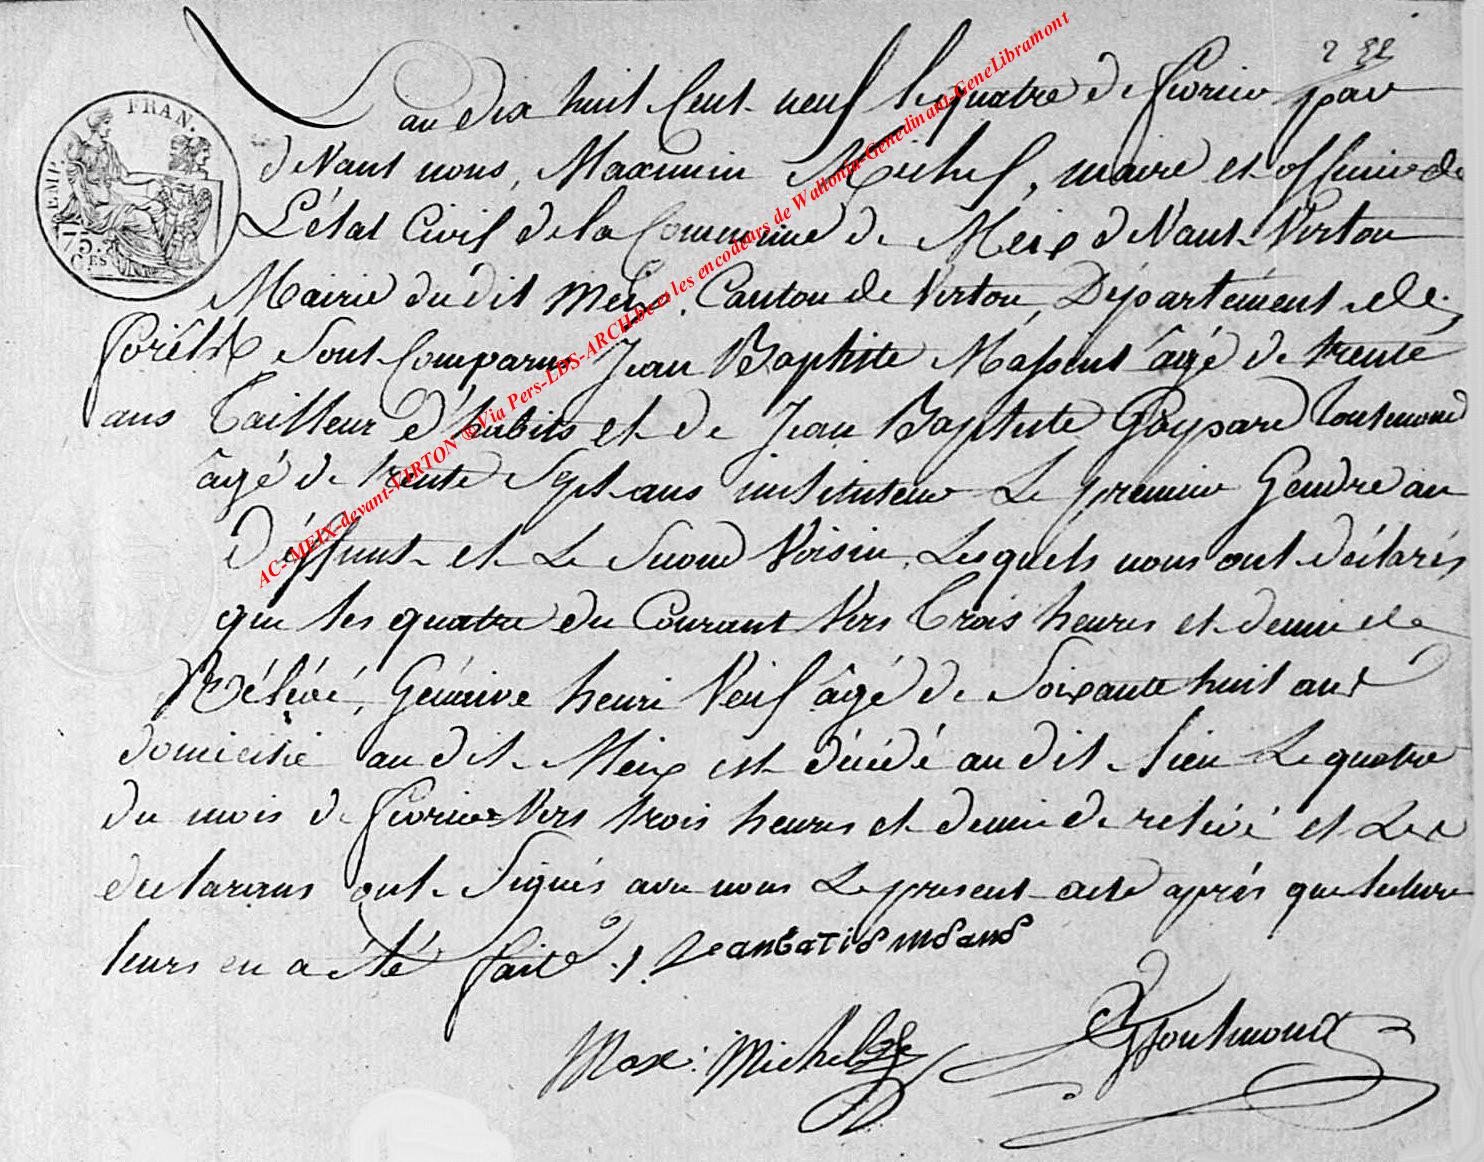 2 82
L'an dix huit Cent neuf le quatre de fevrier par
devant nous, Maximin Michel, maire et officier de
L'état Civil de la Commune de Meix devant Virton
Mairie du dit Meix, Canton de Virton, Département de
forêts sont Comparus Jean Baptiste Massent âgé de trente
ans Tailleur d'habits et de Jean Baptiste Gaspard toutmond
âgé de trente sept ans instituteur Le premier Gendre au
Déffunt et Le Second Voisin, Lesquels nous ont déclarés
que les quatre du Courant vers Trois heures et demie de
Rélévé, henri Veuf âgé de Soixante huit ans
domicilié au dit Meix est décédé au dit lieu Le quatre
du mois de fevrier vers trois heures et demie de relévé et Les
declarans ont Signés avec nous Le present acte après que lecture
leurs en a été faite
Max: Michel
FRAN.
EMP.
75
C.ES
AC-MEIX-devant-VIRTON ® Via Pers-LDS-ARCH.be et les encodeurs de Wallonia-Genedinant-GeneLibramont